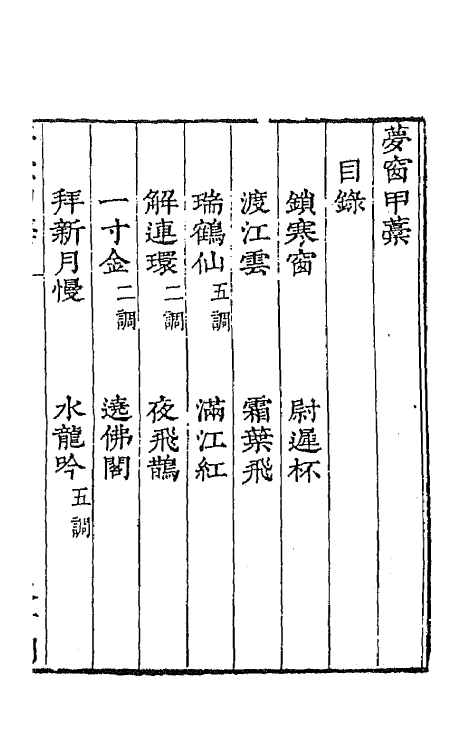 夢窗甲藁
目錄
鎖寒窗 尉遲杯
渡江雲 霜葉飛
瑞鶴仙五調 滿江紅
解連環二調 夜飛鵲
一寸金二調 遶佛閣
拜新月慢 水龍吟五調